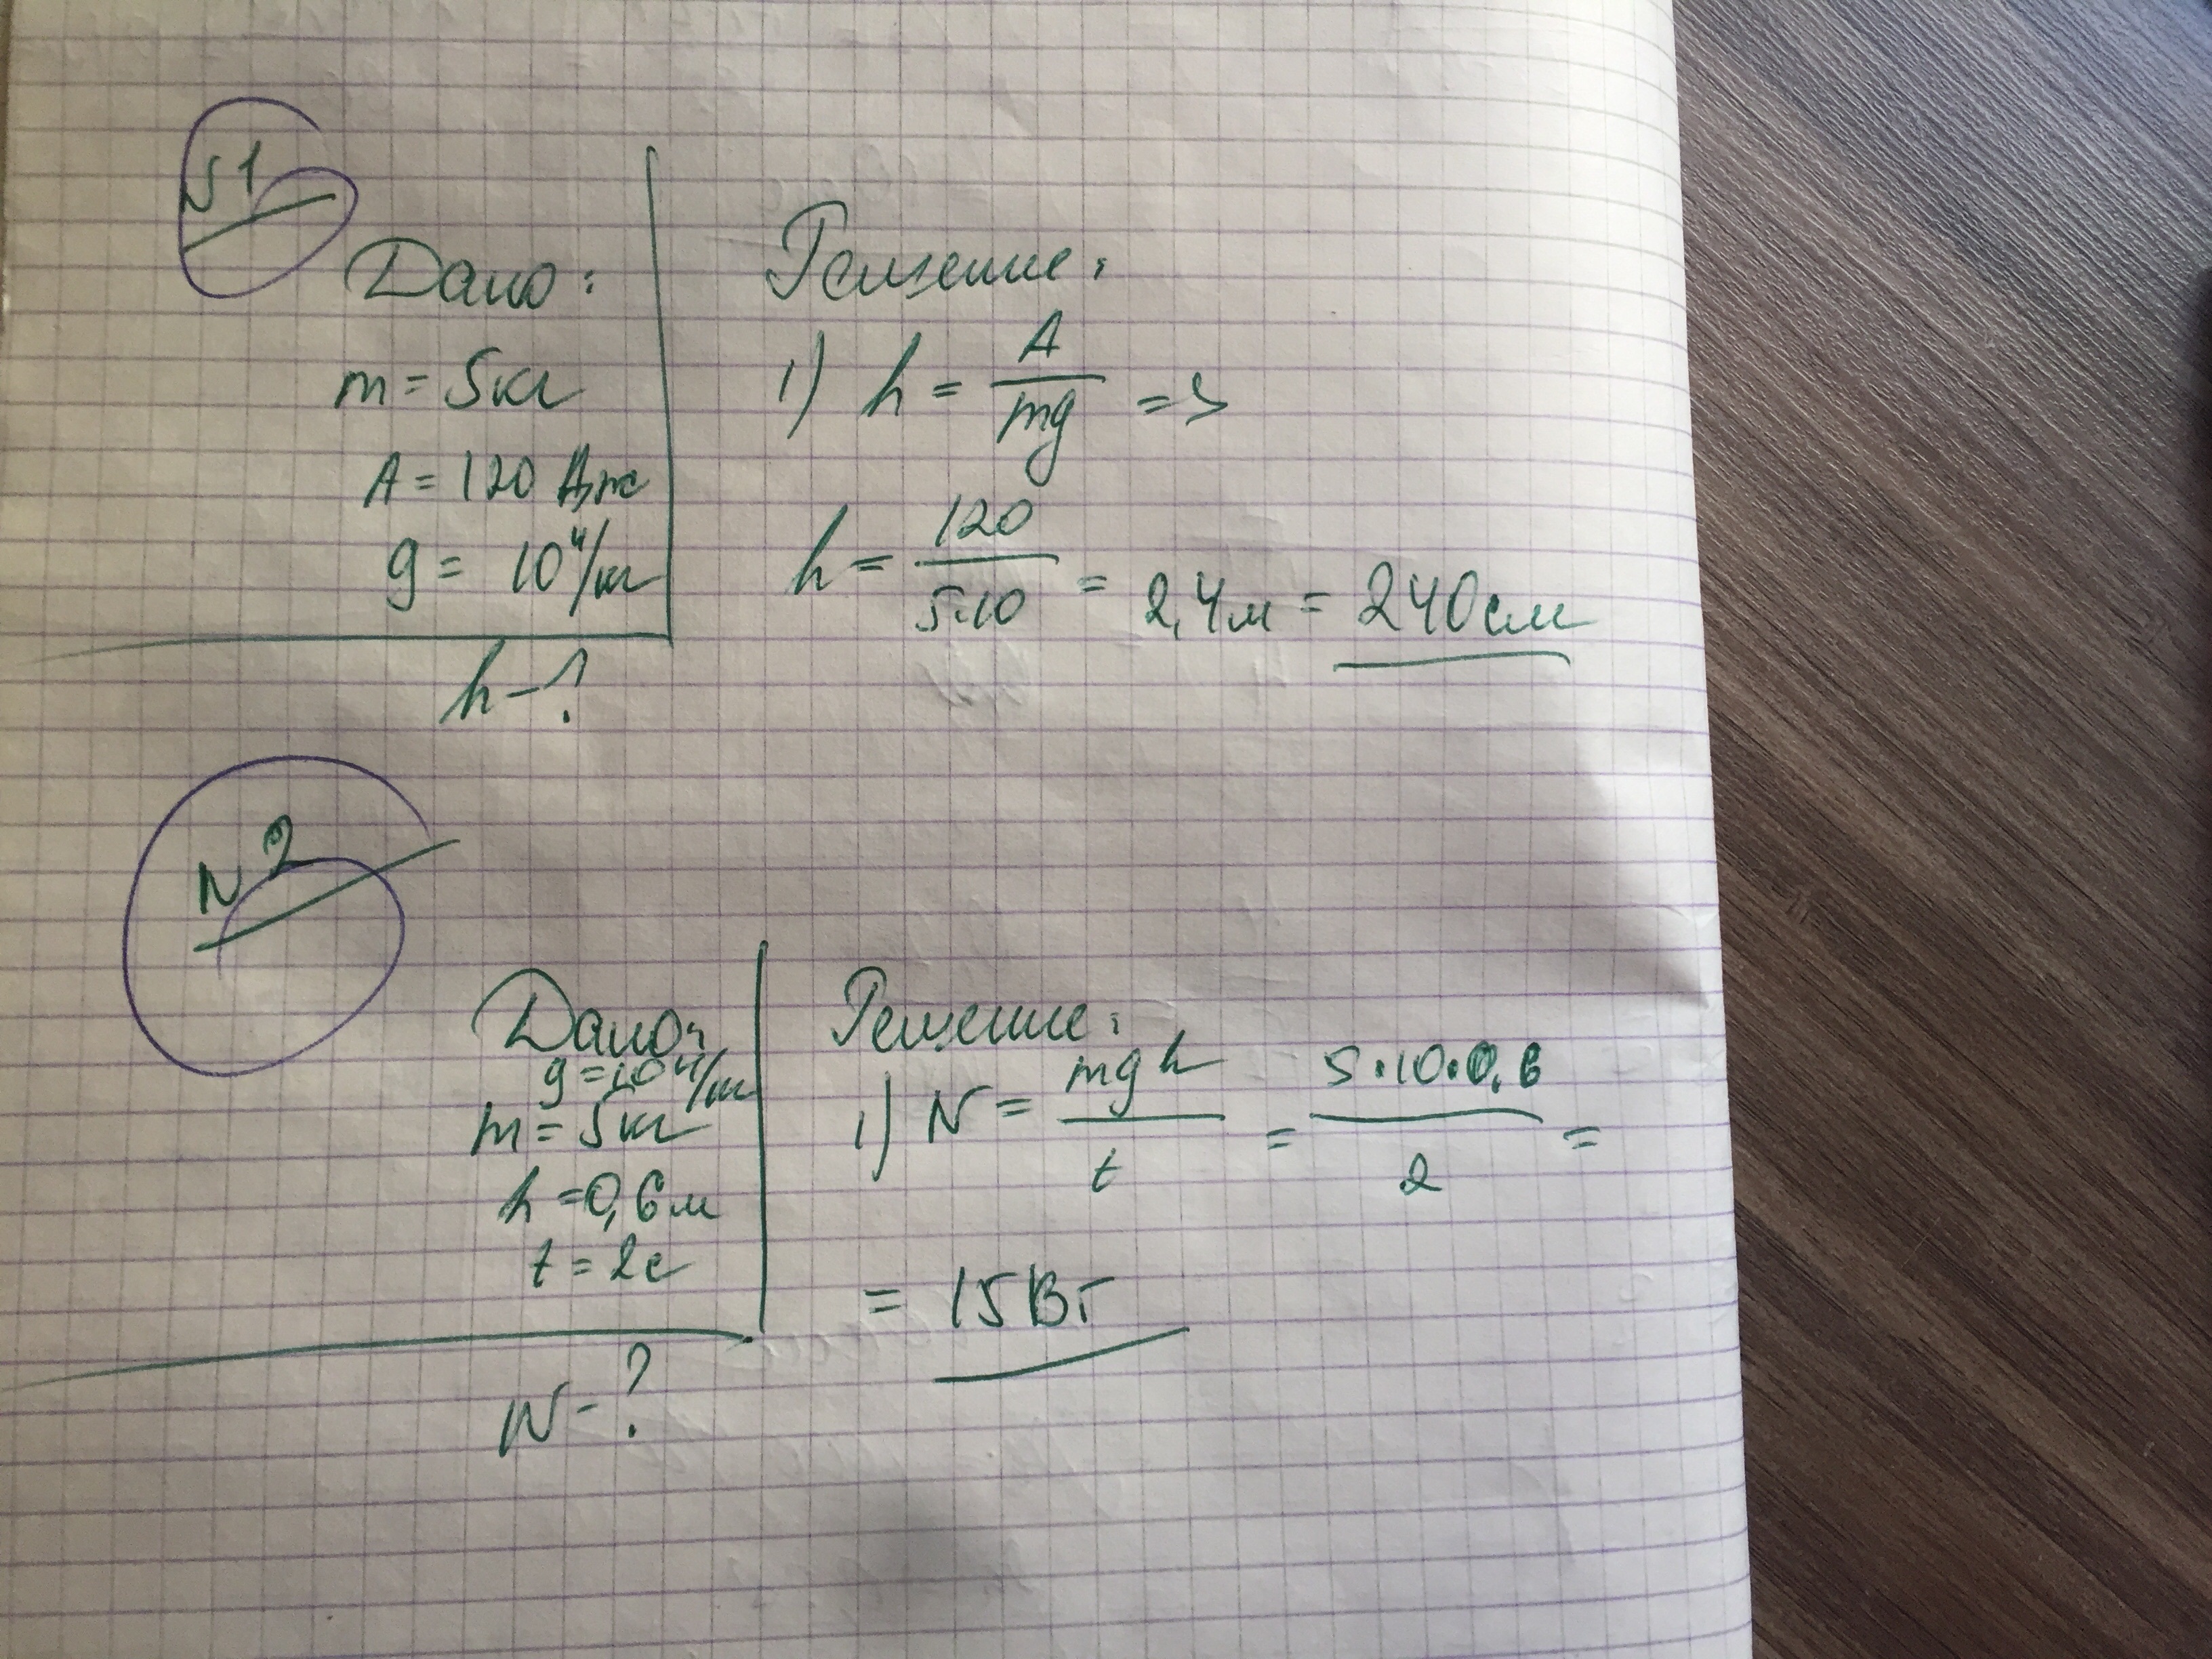 N1
Дано:
m = 5кг
A = 120 Дж
g = 10 Н/кг
h - ?
Решение:
1) h = A/mg =>
h = 120/5·10 = 2,4м = 240см
N2
Дано:
g = 10 Н/кг
m = 5кг
h = 0,6м
t = 2с
N - ?
Решение:
1) N = mgh/t = 5·10·0,6/2 =
= 15Вт